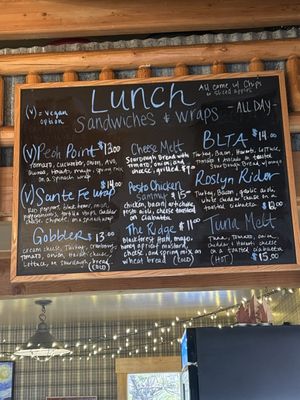 LUNCH
Sandwiches & Wraps
All come w/ Chips
or sliced apples
- ALL DAY -
(V) = vegan
option
(V) Peoh Point $13.00
Tomato, cucumber, onion, avo,
hummus, tomato, mayo, spring mix
on a Spinach wrap
(V) Sante Fe wrap
$14.00
Cheddar cheese, chipotle
Gobbler $13.00
Cream cheese, Turkey, cranberry,
tomato, onion,
Lettuce, on Sourdough bread
(COLD)
Cheese Melt
Sourdough Bread with
tomato, onion, and
cheese, grilled $9.00
Pesto Chicken
Sammy $15
chicken, bacon, artichoke,
pesto aioli, cheese toasted
on Ciabatta
The Ridge $11.00
Black forest ham, mayo,
honey apricot mustard,
cheese, and spring mix on
wheat bread (COLD)
BLTA $14.00
Turkey, Bacon, Avocado, Lettuce,
tomato & mayo on toasted
Sourdough Bread
Roslyn Rider
Turkey, Bacon, garlic aioli,
white cheddar cheese
on a toasted
$13.00
Tuna Melt
Tuna, tomato, onion,
cheddar cheese
on a toasted ciabatta
(HOT) $15.00